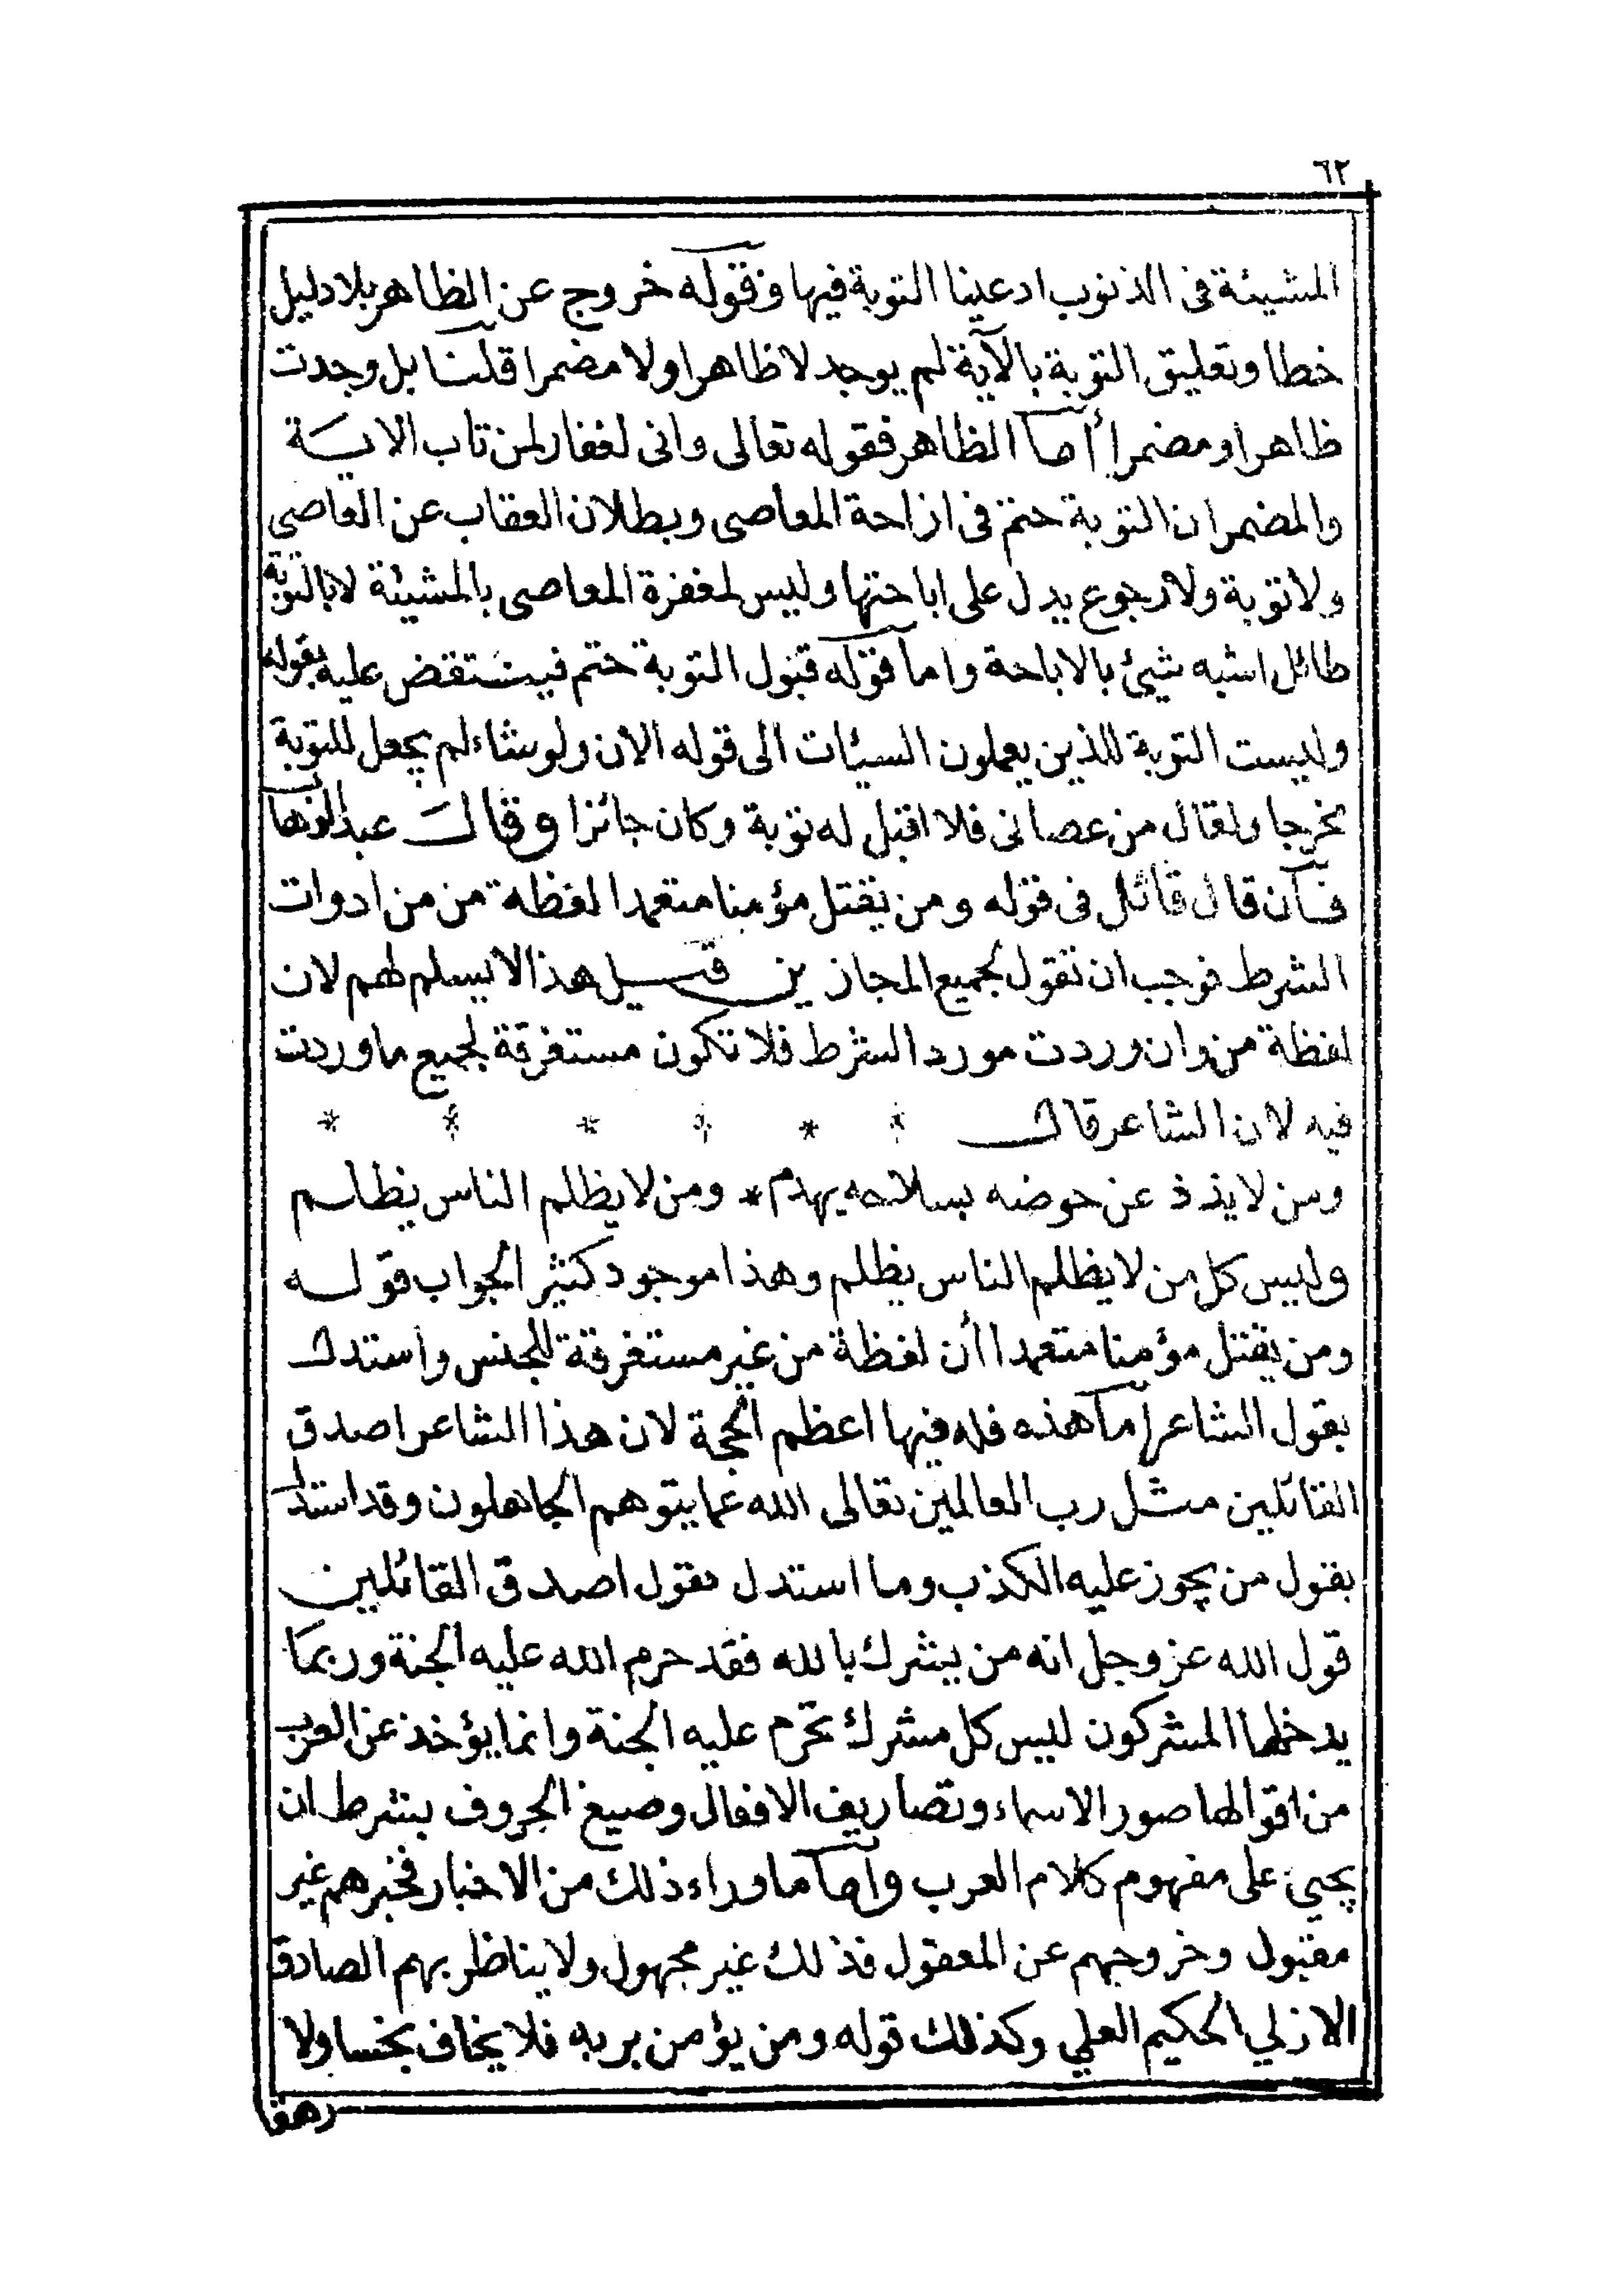 ٦٢
المشيئة فى الذنوب ادعينا التوبة فيها وقوله خروج عن الظاهر بلا دليل
خطا وتعليق التوبة بالآية لم يوجد لا ظاهرا ولا مضمرا قلنا بل وجدت
ظاهرا ومضمرا أما الظاهر فقوله تعالى وانى لغفار لمن تاب الاية
والمضمر ان التوبة حتم فى ازاحة المعاصى وبطلان العقاب عن العاصى
ولا توبة ولا رجوع يدل على اباحتها وليس لمغفرة المعاصى بالمشيئة لا بالتوبة
طائل اشبه شيئ بالاباحة واما قوله قبول التوبة حتم فينتقض عليه بقوله
وليست التوبة للذين يعملون السيئات الى قوله الان ولو شاء لم يجعل للتوبة
مخرجا ولقال من عصانى فلا اقبل له توبة وكان جائزا وقال عبد الوهاب
فان قال قائل فى قوله ومن يقتل مؤمنا متعمدا لفظة من من ادوات
الشرط فوجب ان نقول لجميع المجازين قيل هذا لا يسلم لهم لان
لفظة من وان وردت مورد الشرط فلا تكون مستغرقة لجميع ما وردت
فيه لان الشاعر قال * * * * * *
ومن لا يذد عن حوضه بسلاحه يهدم * ومن لا يظلم الناس يظلم
وليس كل من لا يظلم الناس يظلم وهذا موجود كثير الجواب قوله
ومن يقتل مؤمنا متعمدا أن لفظة من غير مستغرقة للجنس واستدل
بقول الشاعر اما هذه فله فيها اعظم الحجة لان هذا الشاعر اصدق
القائلين مثل رب العالمين تعالى الله عما يتوهم الجاهلون وقد استدل
بقول من يجوز عليه الكذب وما استدل بقول اصدق القائلين
قول الله عز وجل انه من يشرك بالله فقد حرم الله عليه الجنة وربما
يدخلها المشركون ليس كل مشرك تحرم عليه الجنة وانما يؤخذ عن العرب
من اقوالها صور الاسماء وتصاريف الافعال وصيغ الحروف بشرط ان
يجيئ على مفهوم كلام العرب وأما ما وراء ذلك من الاخبار فخبرهم غير
مقبول وخروجهم عن المعقول فذلك غير مجهول ولا يناظر بهم الصادق
الازلي الحكيم العلي وكذلك قوله ومن يؤمن بربه فلا يخاف بخسا ولا
رهقا